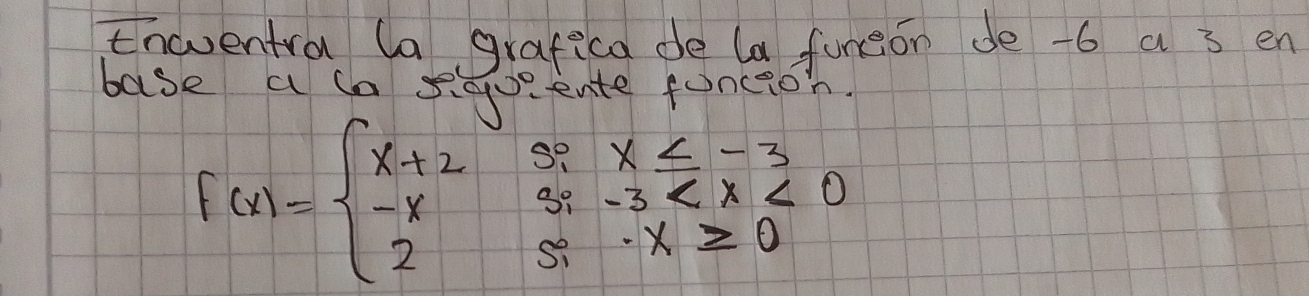 Encuentra la grafica de la función de -6 a 3 en
base a la siguiente función.
f(x)= { x+2 si x ≤ -3
-x si -3 < x < 0
2 si x ≥ 0